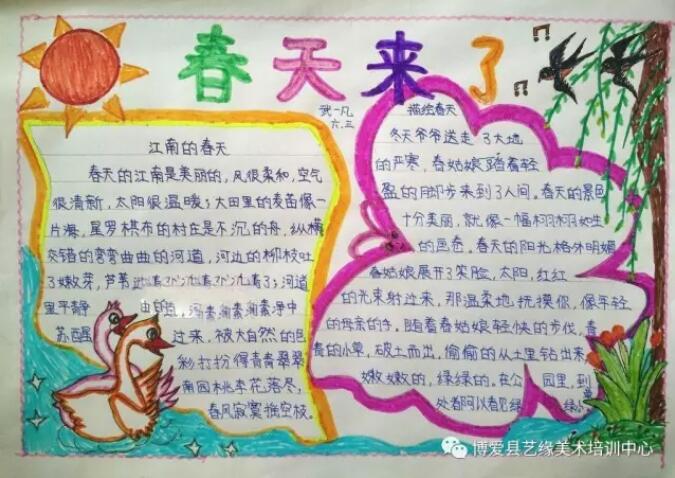 春天来了
武一凡
六.三
江南的春天
春天的江南是美丽的,风很柔和,空气
很清新,太阳很温暖;大田里的麦苗像一
片海,星罗棋布的村庄是不沉的舟,纵横
交错的弯弯曲曲的河道,河边的柳枝吐
了嫩芽,芦苇
河道
里平静
苏醒 过来,被大自然的色
彩打扮得青青翠翠
南园桃李花落尽,
春风寂寞摇空枝。
描绘春天
冬天爷爷送走了大地
的严寒,春姑娘踏着轻
盈的脚步来到了人间。春天的景色
十分美丽,就像一幅栩栩如生
的画卷。春天的阳光格外明媚
春姑娘展开了笑脸,太阳,红红
的光束射过来,那温柔地抚摸你,像年轻
的母亲的手。随着春姑娘轻快的步伐,青
青的小草,破土而出,偷偷的从土里钻出来,
嫩嫩的,绿绿的,在公园里,到
处都可以看见绿
博爱县艺缘美术培训中心